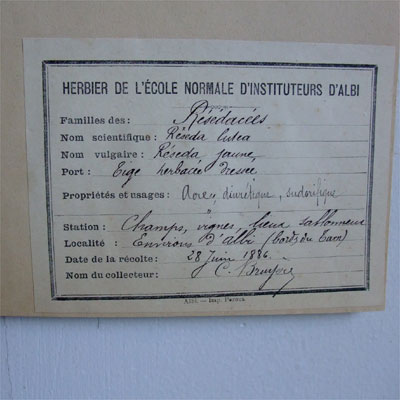 HERBIER DE L'ÉCOLE NORMALE D'INSTITUTEURS D'ALBI
Familles des: Résédacées
Nom scientifique: Réséda lutea
Nom vulgaire: Réséda jaune
Port: Tige herbacée dressée
Propriétés et usages: Acre, diurétique, sudorifique
Station: Champs, vignes, lieux sablonneux
Localité: Environs d'Albi (bords du Tarn)
Date de la récolte: 28 Juin 1886.
Nom du collecteur: C.
Albi. — Imp. Pezous